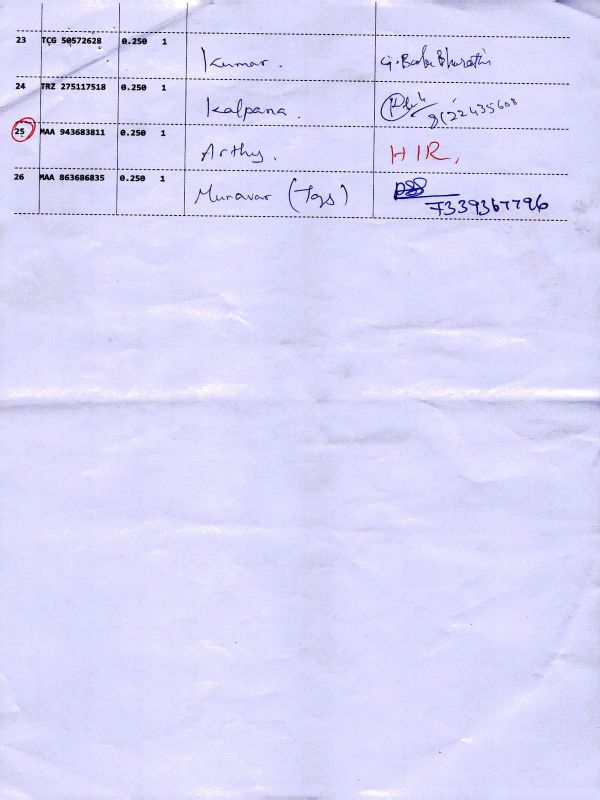 23 TCG 50572628 0.250 1 Kumar. G. Babu Bharathi
24 TRZ 275117518 0.250 1 Kalpana.
25 MAA 943683811 0.250 1 Arthy. HIR,
26 MAA 863686835 0.250 1 Muravar (Tgs)
7339367796